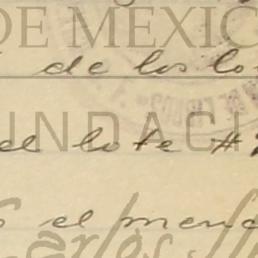 DE MEXIC
de los lo
FUNDACI
el lote #
el menc
Carlos Sl